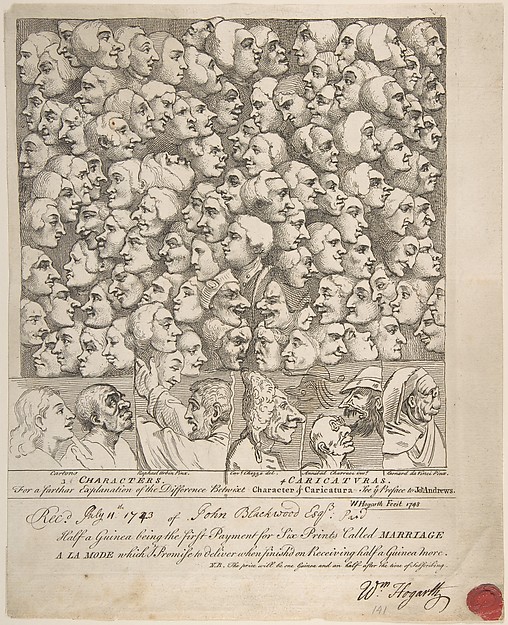 Cartons Raphael Urbin Pinx. Cavr. Ghezzi del. Annibal Charracc inv. Leonard da Vinci Pinx.
3 CHARACTERS. 4 CARICATURAS.
For a farthar Explanation of the Difference Betwixt Character & Caricatura See ye Preface to Joh. Andrews.
W Hogarth Fecit 1743
Recd. July 11th. 1743 of John Blackwood Esqr. Paid
Half a Guinea being the first Payment for Six Prints Called MARRIAGE
A LA MODE which I Promise to deliver when finish'd on Receiving half a Guinea more.
N.B. The price will be one Guinea and an half after the time of Subscribing.
Wm Hogarth
191